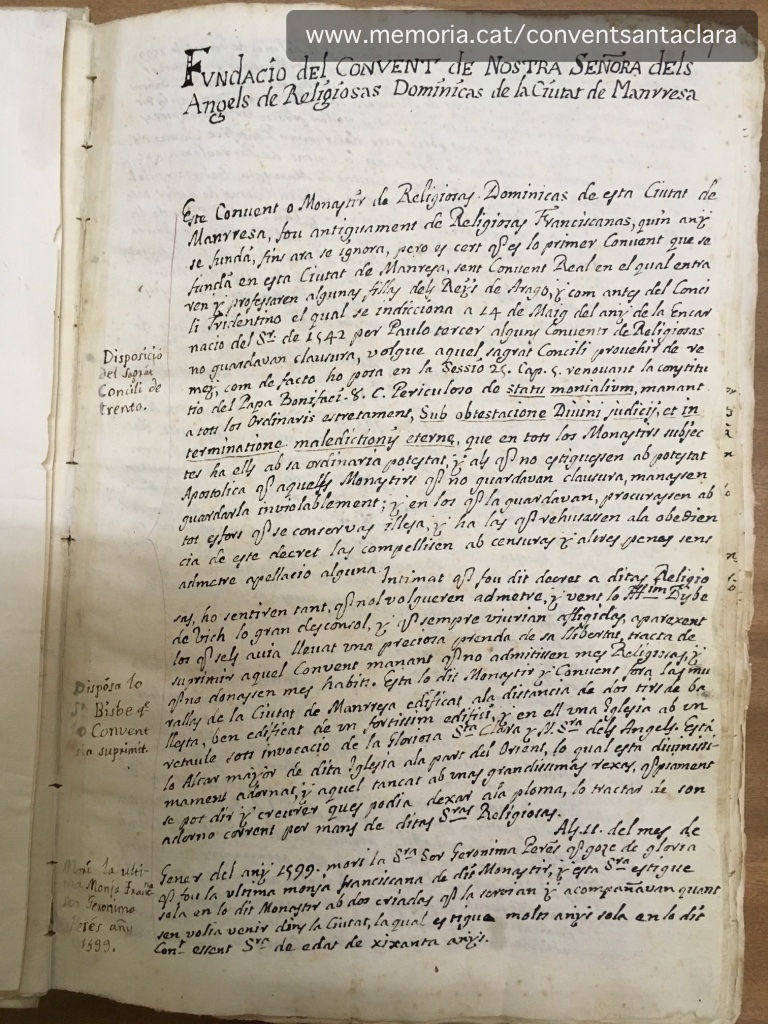 www.memoria.cat/conventsantaclara
FUNDACIO del CONVENT de NOSTRA SEÑORA dels
Angels de Religiosas Dominicas de la Ciutat de Manrresa
Este Convent o Monastir de Religiosas Dominicas de esta Ciutat de
Manrresa, fou antiguament de Religiosas Franciscanas, quin anÿ
se fundá, fins ara se ignora, pero es cert qᵉ es lo primer Convent que se
fundá en esta Ciutat de Manresa, sent Convent Real en el qual entra
ren ÿ professaren algunas fillas dels Reÿs de Arago, ÿ com antes del Conci
li Tridentino el qual se indicciona a 14 de Maig del anÿ de la Encar
nacio del Sʳ. de 1542 per Paulo tercer alguns Convents de Religiosas
no guardavan clausura, volgue aquel sagrat Concili provehir de re
meÿ, com de facto ho posa en la Sessio 25. Cap. 5. renovant la constitu
tio del Papa Bonifaci. 8. C. Periculoso de statu monialium, manant
a tots los Ordinaris estretament, Sub obtestacione Divini judicÿ, et in
terminatione maledictionÿs eterne, que en tots los Monastirs subjec
tes ha ells ab sa ordinaria potestat, ÿ als qᵉ no estiguessen ab potestat
Apostolica qᵉ aquells Monastirs qᵉ no guardavan clausura, manassen
guardarla inviolablement; ÿ en los qᵉ la guardavan, procurassen ab
tot esfors qᵉ se conservas illesa, ÿ ha las qᵉ rehusassen ala obedien
cia de este decret las compellisen ab censuras ÿ altres penes sens
admetre apellacio alguna.
Intimat qᵉ fou dit decret a ditas Religio
sas, ho sentiren tant, qᵉ nol volgueren admetre, ÿ vent lo Illᵐ Bisbe
de Vich lo gran desconsol, ÿ qᵉ sempre viurian afligidas, aparexent
los qᵉ sels avia llevat una preciosa prenda de sa llibertat, tracta de
suprimir aquel Convent manant qᵉ no admitissen mes Religiosas, ÿ
qᵉ no donassen mes habits. Esta lo dit Monastir ÿ Convent fora las mu
rallas de la Ciutat de Manrresa edificat ala distancia de dos tirs de ba
llesta, ben edificat de un fortissim edifici, ÿ en ell una Iglesia ab un
retaule sots invocacio de la Gloriosa Sᵗᵃ Clara ÿ N. Sʳᵃ dels Angels. Está
lo Altar major de dita Iglesia ala part del Orient, lo qual está divinissi
mament adornat, ÿ aquel tancat ab unas grandissimas rexas, qᵉ piament
se pot dir ÿ creurer ques podia dexar ala ploma, lo tractar de son
adorno corrent per mans de ditas Sʳᵃˢ Religiosas.
Als 11. del mes de
Gener del anÿ 1599. mori la Sʳᵃ Sor Geronima Peres qᵉ goze de gloria
qᵉ fou la ultima monja franciscana de dit Monastir, ÿ esta Sʳᵃ estigue
sola en lo dit Monastir ab dos criadas qᵉ la servian ÿ acompañavan quant
sen volia venir dins la Ciutat, la qual estigue molts anÿs sola en lo dit
Conᵗ essent Sʳᵃ de edat de xixanta anÿs.
Disposició
del Sagrat
Concili de
Trento.
Dispósa lo
Sʳ. Bisbe qᵉ
lo Convent
sia suprimit.
Morí la ulti
ma Monja Fran
Sor Geronima
Perés añÿ
1599.